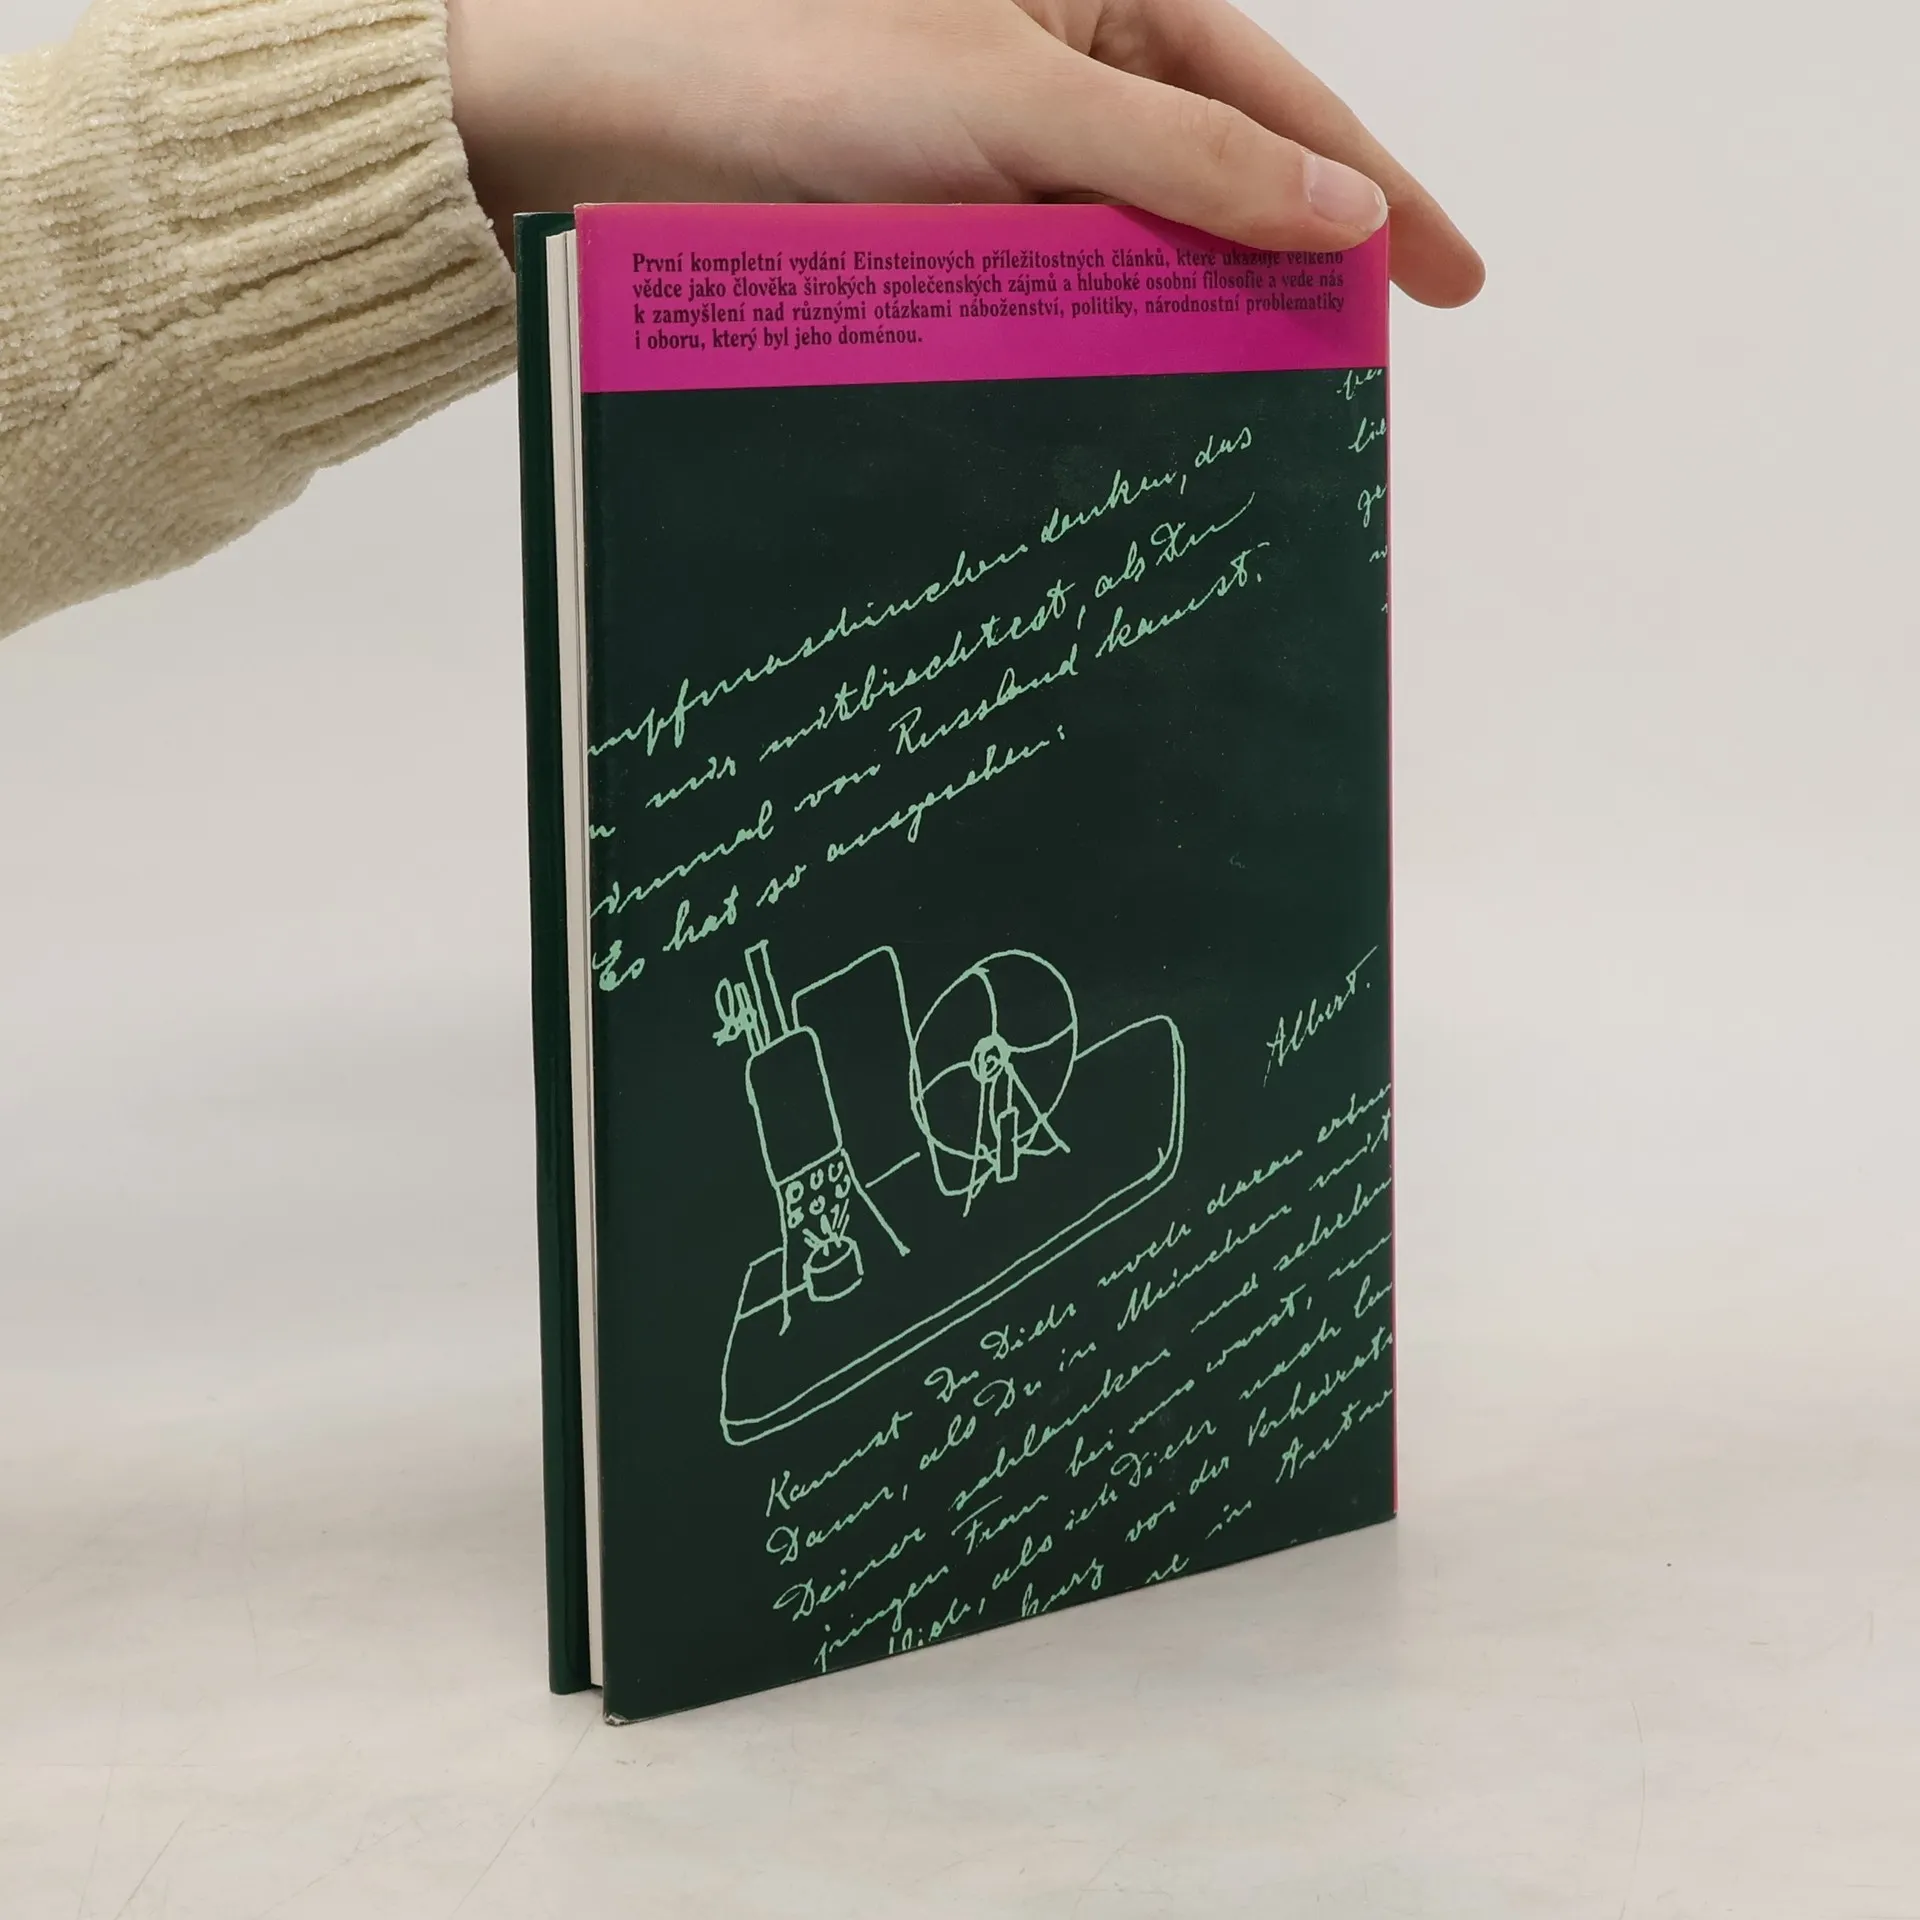 První kompletní vydání Einsteinových příležitostných článků, které ukazuje velkého
vědce jako člověka širokých společenských zájmů a hluboké osobní filosofie a vede nás
k zamyšlení nad různými otázkami náboženství, politiky, národnostní problematiky
i oboru, který byl jeho doménou.
mpfmaschinchen denken, das
mir mitbrachtest, als Du
einmal von Russland kamst.
Es hat so ausgesehen:
Albert.
Kannst Du Dich noch daran
Dann, als Du in München mit
Deiner schlanken und
jungen Frau bei uns warst,
als ich Dich nach
kurz vor der
in